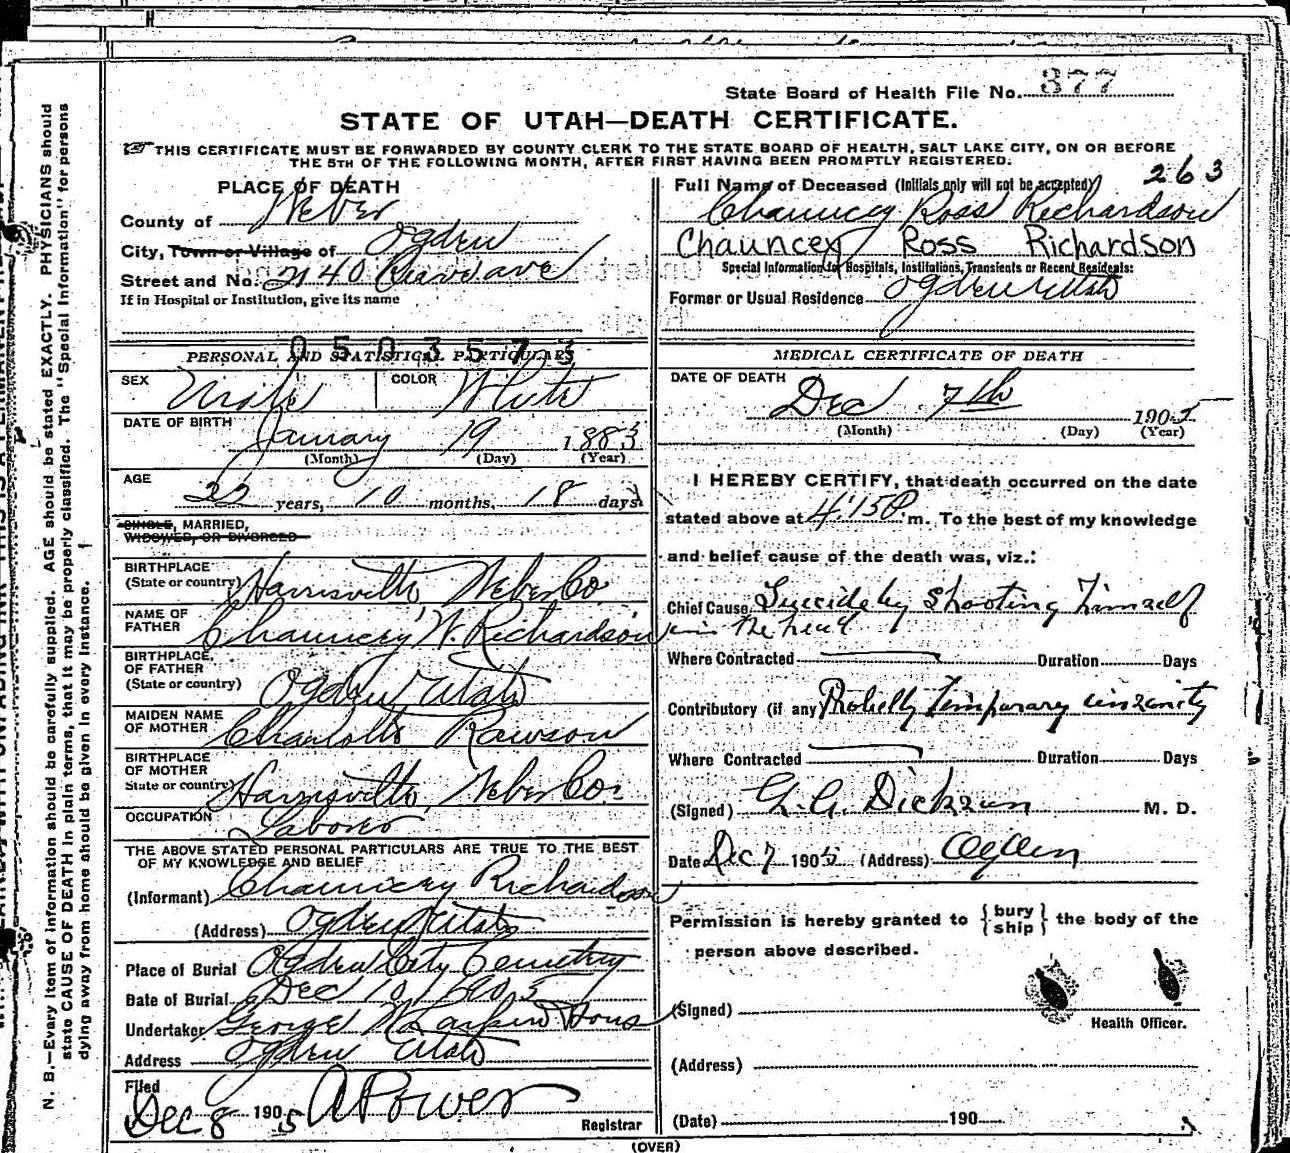 State Board of Health File No. 377
STATE OF UTAH—DEATH CERTIFICATE.
THIS CERTIFICATE MUST BE FORWARDED BY COUNTY CLERK TO THE STATE BOARD OF HEALTH, SALT LAKE CITY, ON OR BEFORE
THE 5TH OF THE FOLLOWING MONTH, AFTER FIRST HAVING BEEN PROMPTLY REGISTERED.
263
PLACE OF DEATH
County of Weber
City, Town or Village of Ogden
Street and No. 2140 ave
If in Hospital or Institution, give its name
0503573
PERSONAL AND STATISTICAL PARTICULARS
SEX Male COLOR White
DATE OF BIRTH January 19 1883
(Month) (Day) (Year)
AGE 22 years, 10 months, 18 days
SINGLE, MARRIED,
WIDOWED, OR DIVORCED
BIRTHPLACE
(State or country) Harrisville, Weber Co
NAME OF
FATHER Chauncey W. Richardson
BIRTHPLACE,
OF FATHER
(State or country) Ogden Utah
MAIDEN NAME
OF MOTHER Charlotte Rawson
BIRTHPLACE
OF MOTHER
State or country) Harrisville, Weber Co.
OCCUPATION Laborer
THE ABOVE STATED PERSONAL PARTICULARS ARE TRUE TO THE BEST
OF MY KNOWLEDGE AND BELIEF
(Informant) Chauncey Richardson
(Address) Ogden Utah
Place of Burial Ogden City Cemetery
Date of Burial Dec 10 1905
Undertaker George W Larkin & Sons
Address Ogden Utah
Filed
Dec 8 1905 A Power
Registrar
Full Name of Deceased (Initials only will not be accepted)
Chauncey Ross Richardson
Chauncey Ross Richardson
Special Information for Hospitals, Institutions, Transients or Recent Residents:
Former or Usual Residence Ogden Utah
MEDICAL CERTIFICATE OF DEATH
DATE OF DEATH
Dec 7th 1905
(Month) (Day) (Year)
I HEREBY CERTIFY, that death occurred on the date
stated above at 4:15 P m. To the best of my knowledge
and belief cause of the death was, viz.:
Chief Cause Suicide by shooting himself
in the head
Where Contracted Duration Days
Contributory (if any) Probably temporary insanity
Where Contracted Duration Days
(Signed) Dickson M. D.
Date Dec 7 1905 (Address) Ogden
Permission is hereby granted to {bury ship} the body of the
person above described.
(Signed)
Health Officer.
(Address)
(Date) 190
(OVER)
N. B.—Every item of information should be carefully supplied. AGE should be stated EXACTLY. PHYSICIANS should
state CAUSE OF DEATH in plain terms, that it may be properly classified. The "Special Information" for persons
dying away from home should be given in every instance.